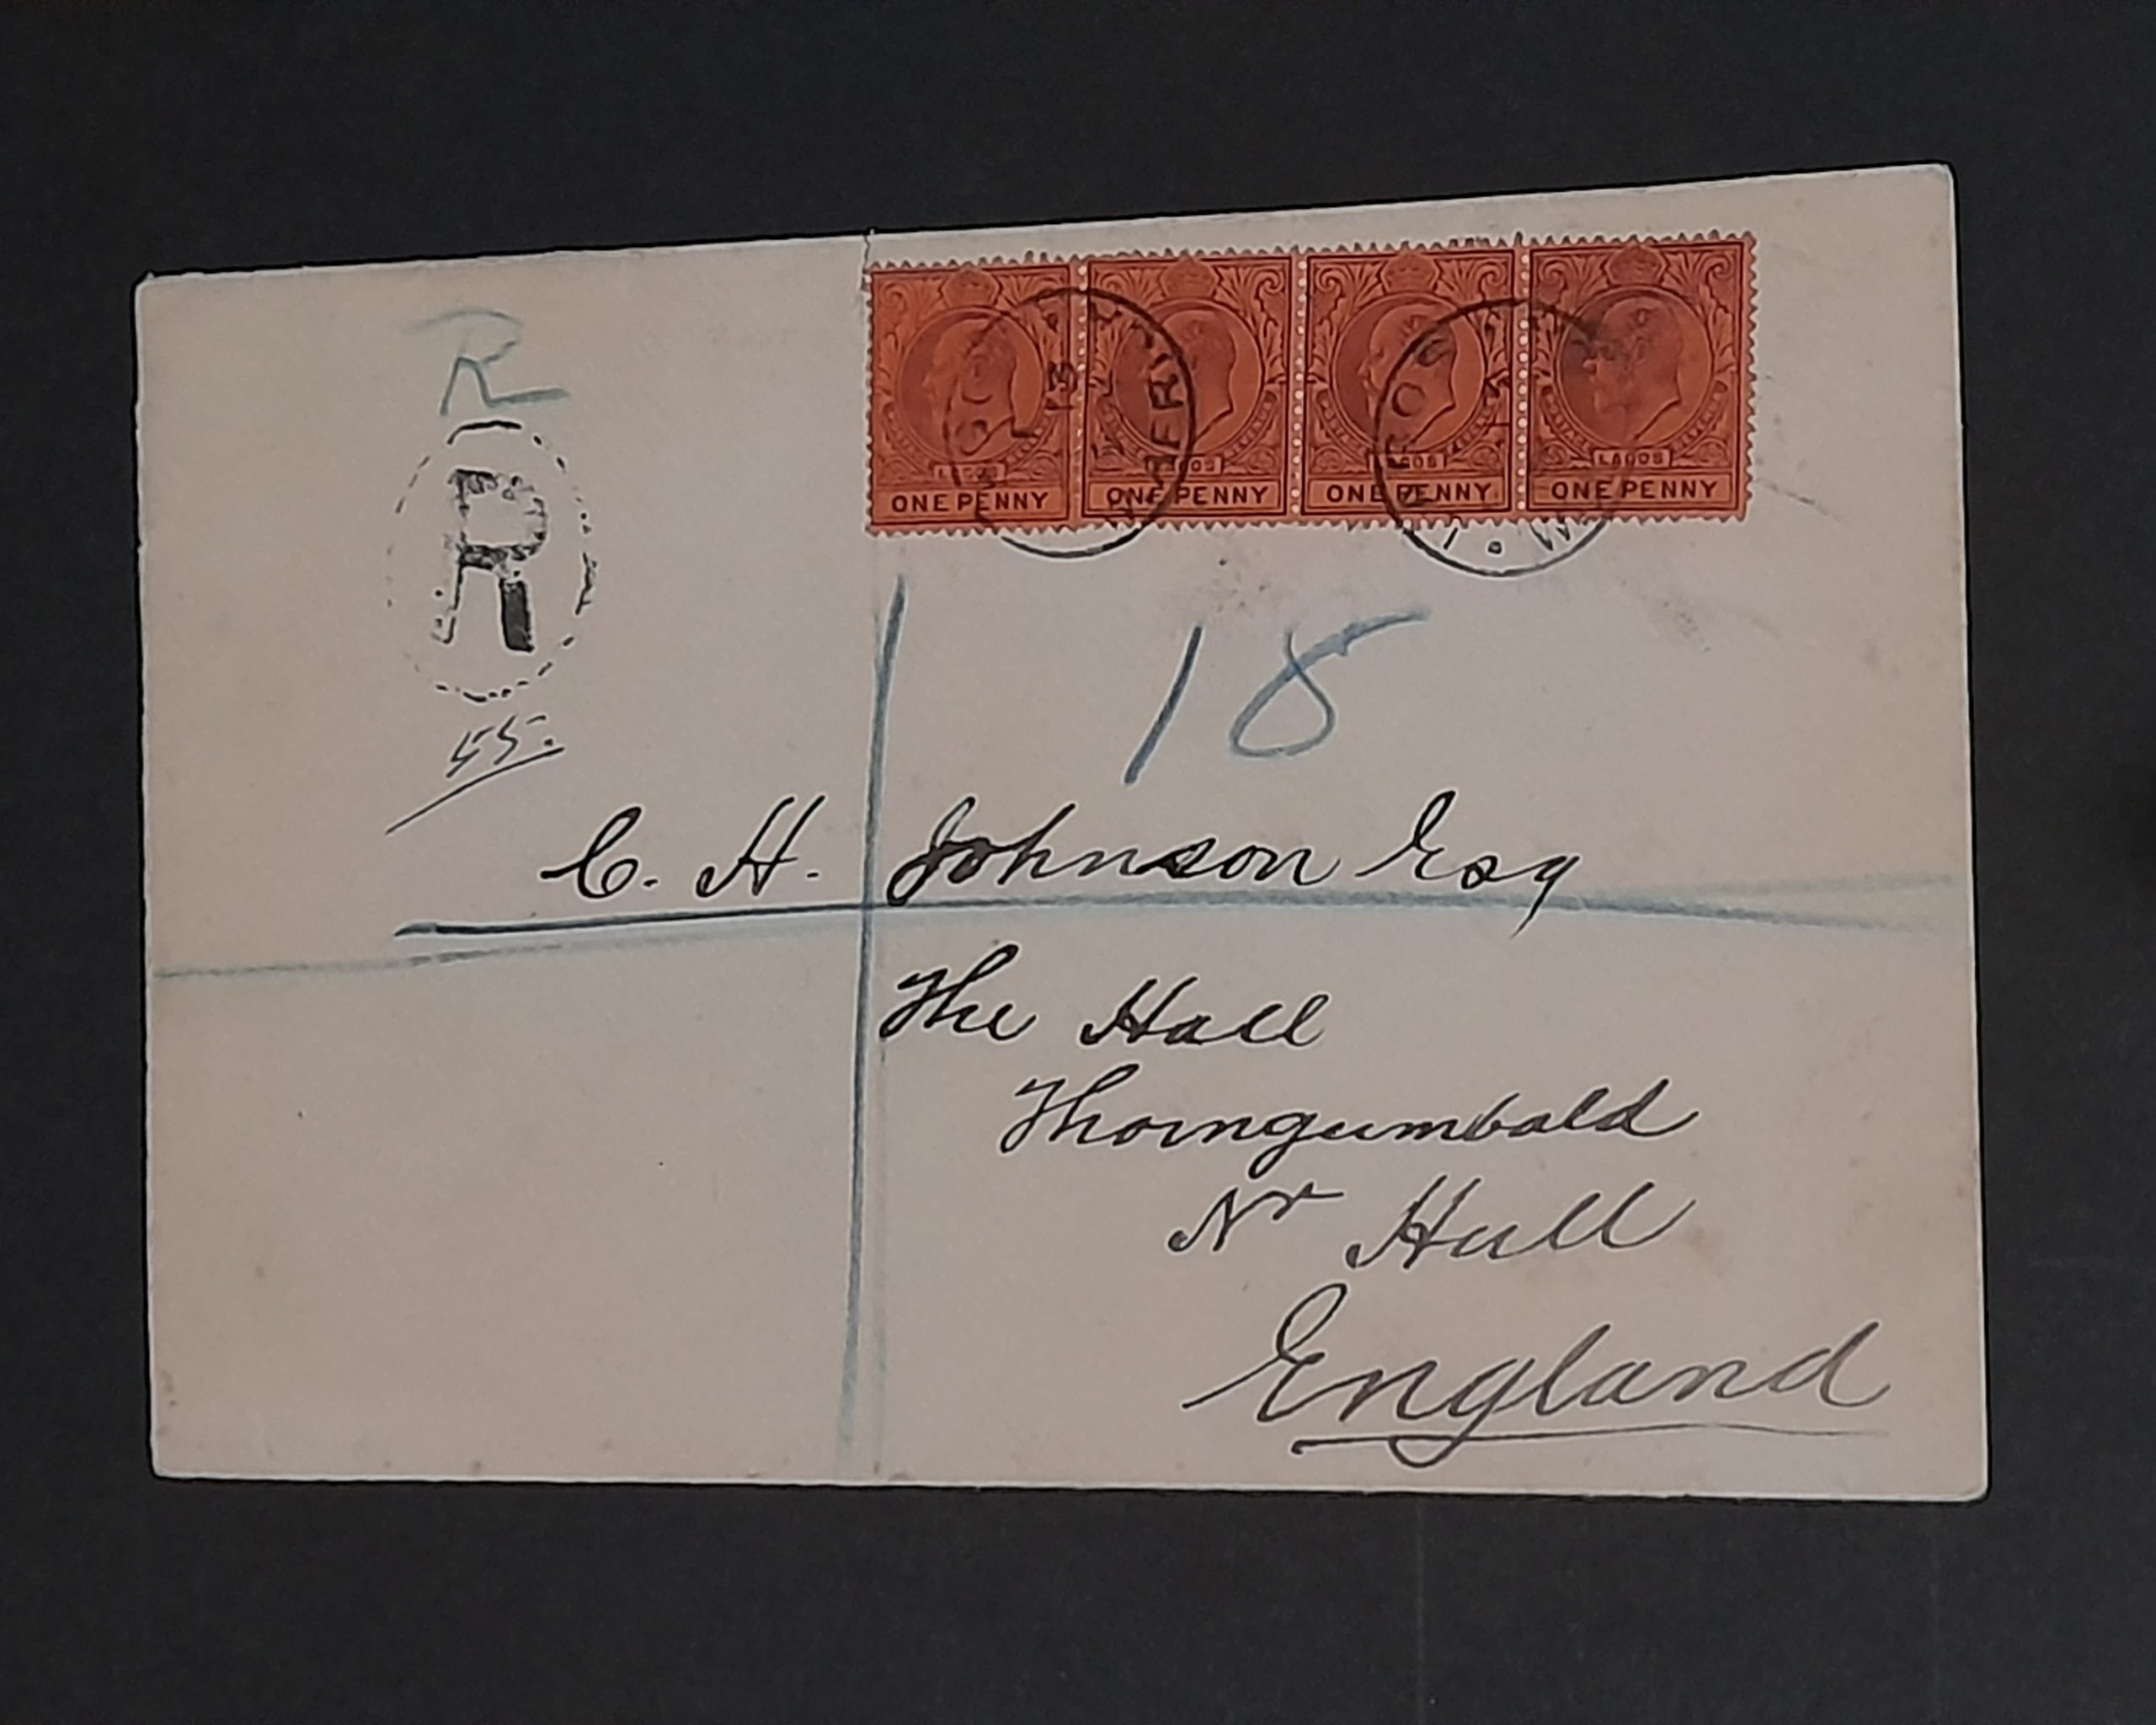 R
R
55.
LAGOS LAGOS LAGOS LAGOS
ONE PENNY ONE PENNY ONE PENNY ONE PENNY
18
C. H. Johnson Esq
The Hall
Thorngumbald
Nr Hull
England